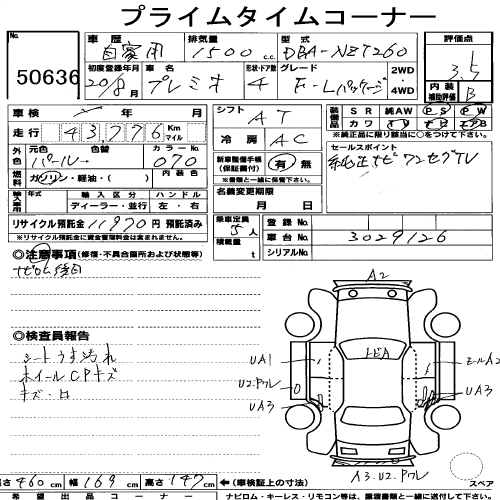 プライムタイムコーナー
No.
50636
車歴 自家用
排気量 1500 c.c.
型式 DBA-NZT260
評価点 3.5
初度登録年月 20/8月
車名 プレミオ
形状・ドア数 4
グレード F-Lパッケージ
2WD
4WD
内装補助評価 B
車検 年 月
走行 43,776 Km マイル
外色 元色 パール 色替 カラーNo. 070
燃料 ガソリン・軽油・( ) 内装色
輸入車用 年式 輸入区分 ディーラー・並行 ハンドル 左・右
リサイクル預託金 11970円 預託済
※リサイクル預託金に資金管理料金は含まれません
シフト AT
冷房 AC
新車整備手帳(保証書付) 有・無
※書類と一緒に保管下さい。
名義変更期限 月 日
装備品 SR 純AW PS PW
カワ ナビ TV エアB
※純正品に限り該当に○をつけて下さい。
セールスポイント
純正ナビ ワンセグTV
乗車定員 5人
積載量 t
登録No.
車台No. 3029126
シリアルNo.
◎注意事項(修復・不具合箇所および状態等)
ナビロム後日
◎検査員報告
シートうす汚れ
ホイールCPキズ
キズ・凹
A2
トビA
UA1
U2.ワレ
UA3
モールA2
UA3
A3.U2.ワレ
スペア
長さ 460 cm 幅 169 cm 高さ 147 cm ←(車検証上の寸法)
希望出品コーナー
ナビロム・キーレス・リモコン等は、譲渡書類と一緒に送付して下さい。